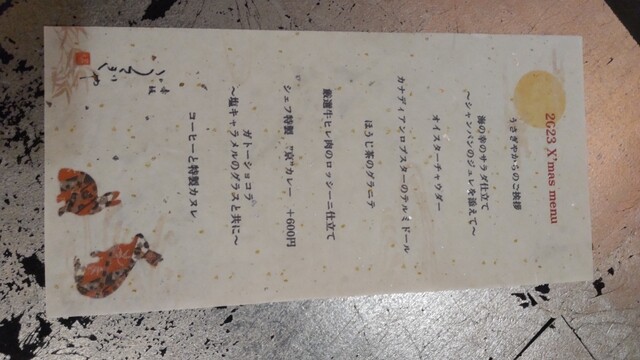 2023 X'mas menu
うさぎやからのご挨拶
海の幸のサラダ仕立て
〜シャンパンのジュレを添えて〜
オイスターチャウダー
カナディアンロブスターのテルミドール
ほうじ茶のグラニテ
厳選牛ヒレ肉のロッシーニ仕立て
シェフ特製 "京"カレー +600円
ガトーショコラ
〜塩キャラメルのグラスと共に〜
コーヒーと特製カヌレ
うさぎや